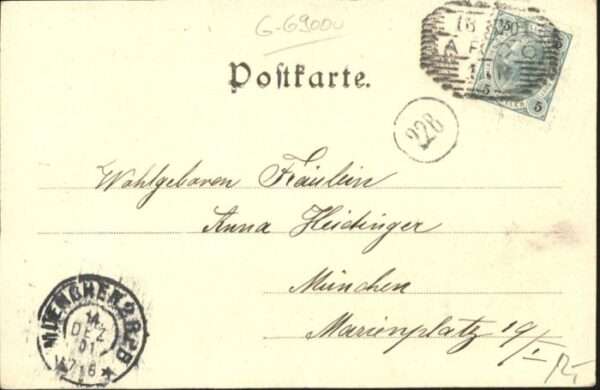 G-6900
Postkarte.
5 5
228
Wohlgeboren Fräulein
Anna Heidinger
München
Marienplatz 19/I
MUENCHEN 2.B.Z.B
14
DEZ
01